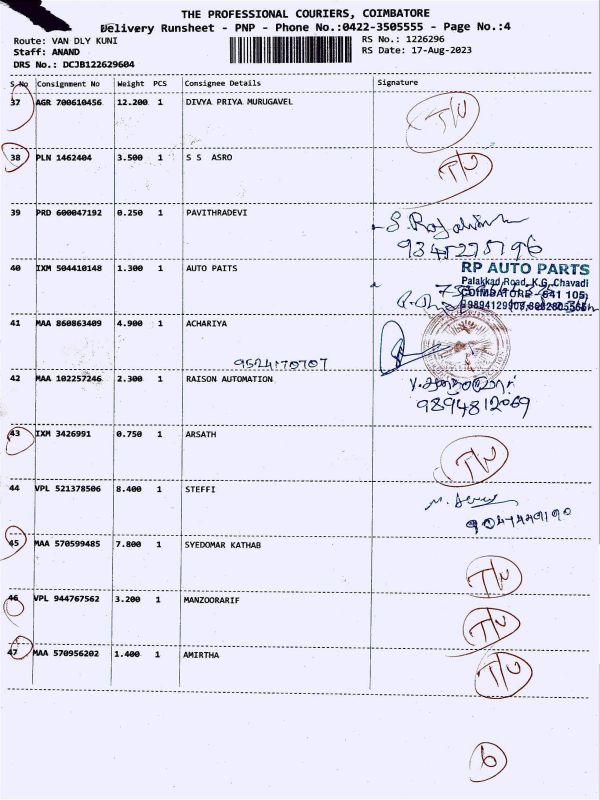 THE PROFESSIONAL COURIERS, COIMBATORE
Delivery Runsheet - PNP - Phone No.:0422-3505555 - Page No.:4
Route: VAN DLY KUNI
RS No.: 1226296
Staff: ANAND
RS Date: 17-Aug-2023
DRS No.: DCJB122629604
S No Consignment No Weight PCS Consignee Details Signature
37 AGR 700610456 12.200 1 DIVYA PRIYA MURUGAVEL
38 PLN 1462404 3.500 1 S S ASRO
39 PRD 600047192 0.250 1 PAVITHRADEVI
40 IXM 504410148 1.300 1 AUTO PAITS
RP AUTO PARTS
Palakkad Road, K.G. Chavadi
COIMBATORE - (641 105)
41 MAA 860863409 4.900 1 ACHARIYA
9524170707
42 MAA 102257246 2.300 1 RAISON AUTOMATION
9894812069
43 IXM 3426991 0.750 1 ARSATH
44 VPL 521378506 8.400 1 STEFFI
45 MAA 570599485 7.800 1 SYEDOMAR KATHAB
46 VPL 944767562 3.200 1 MANZOORARIF
47 MAA 570956202 1.400 1 AMIRTHA
6